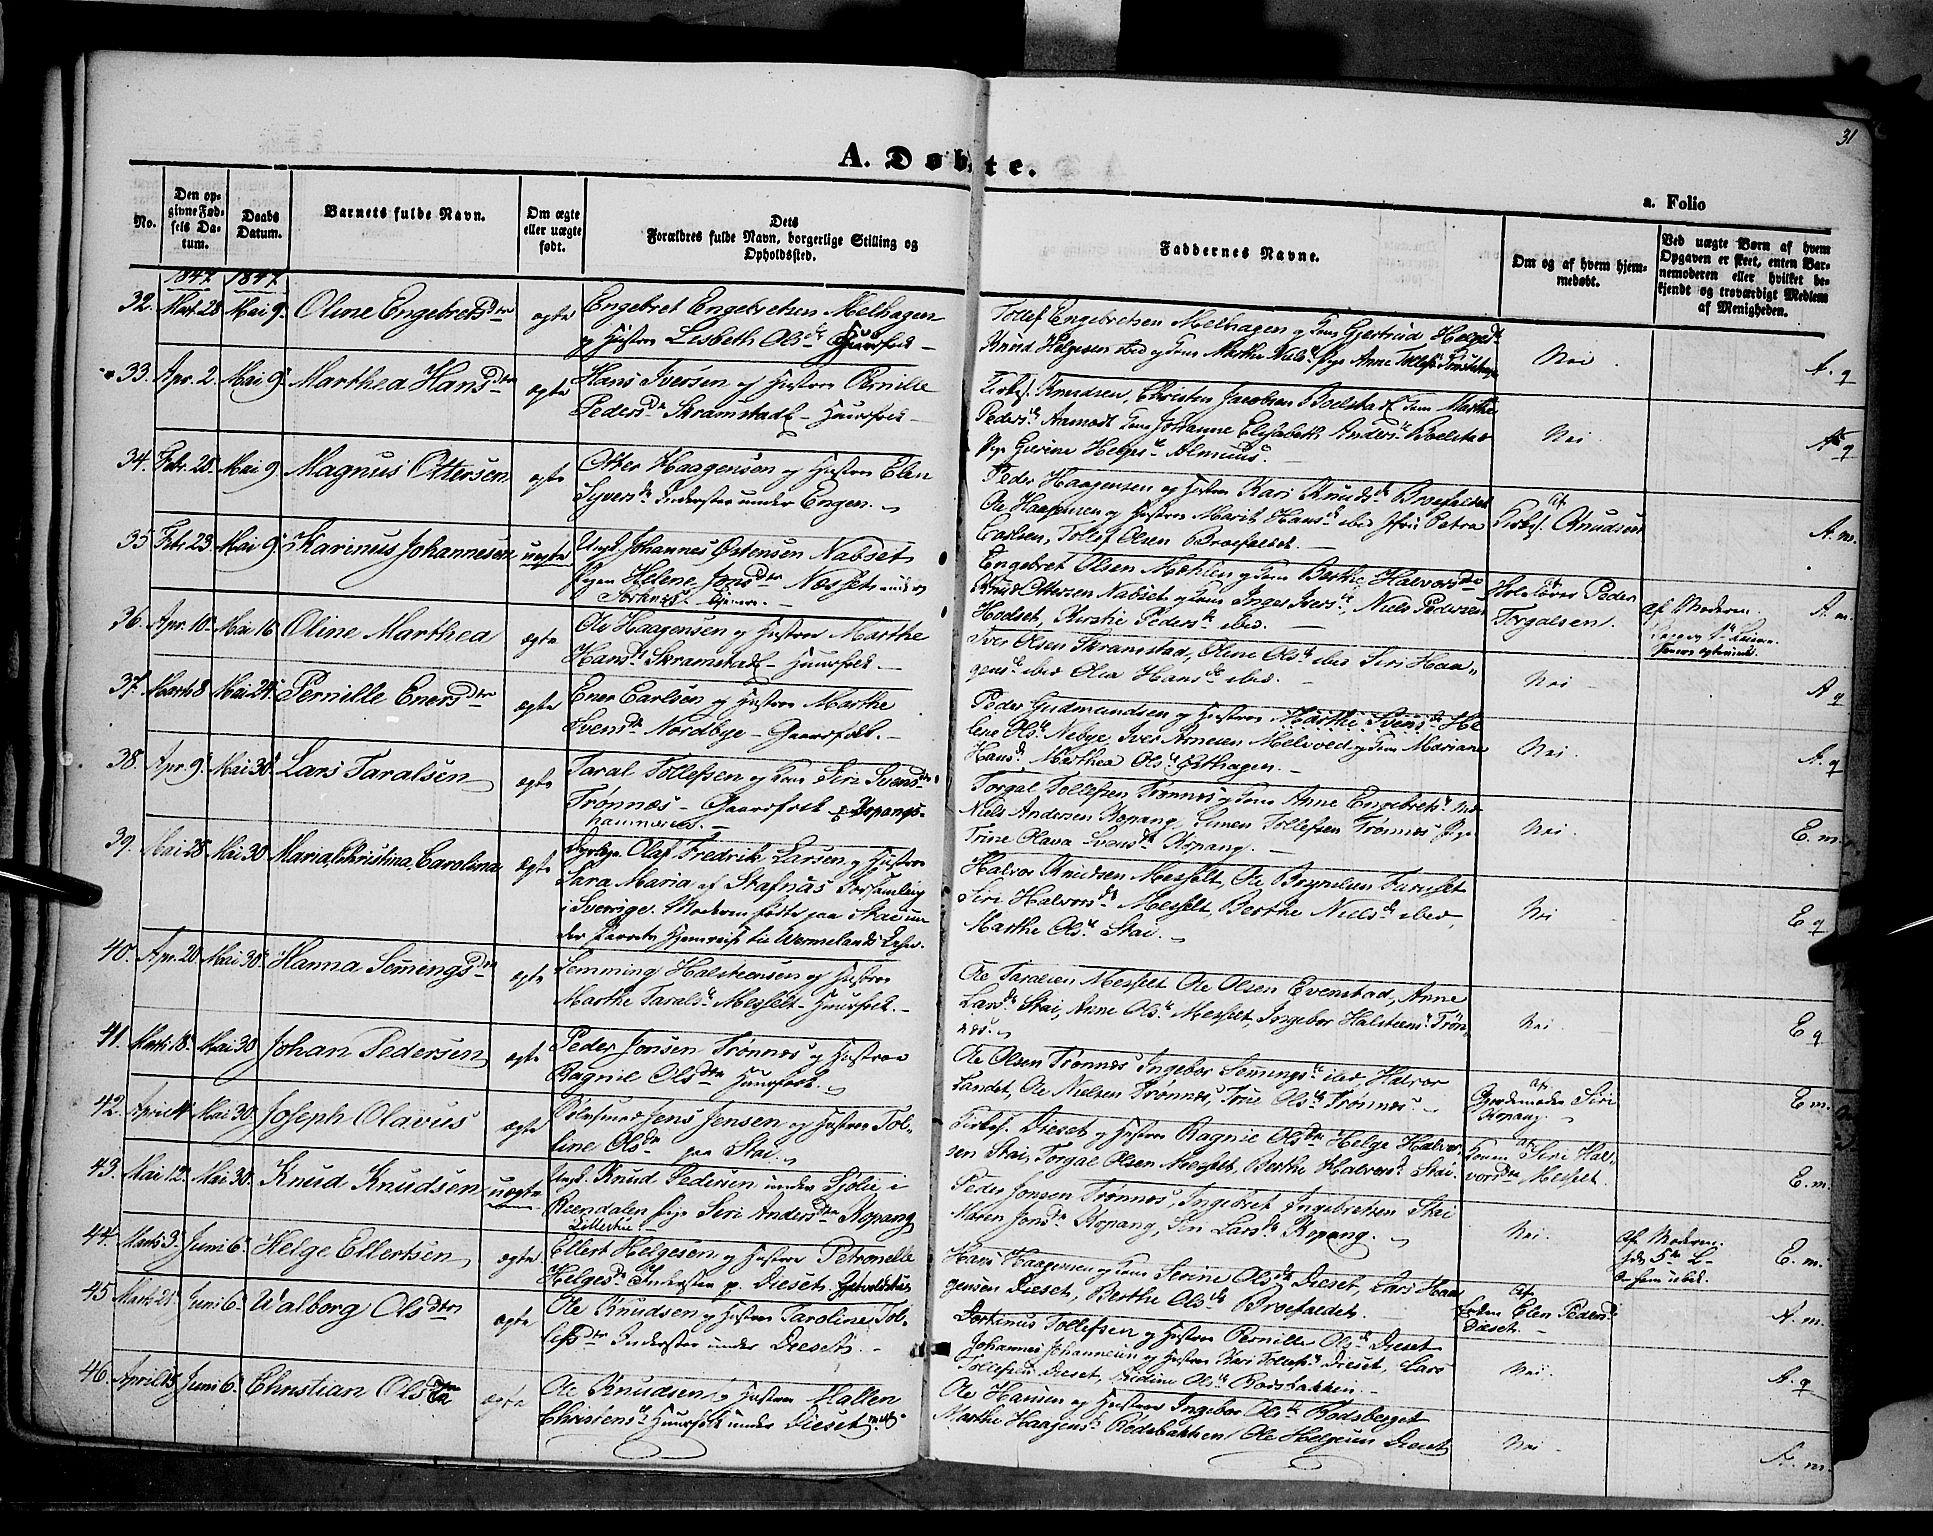 31
A. Døbte.
a. Folio
No.
Den opgivne Fødsels Datum.
Daabs Datum.
Barnets fulde Navn.
Om ægte eller uægte født.
Dets Forældres fulde Navn, borgerlige Stilling og Opholdssted.
Faddernes Navne.
Om og af hvem hjemmedøbt.
Ved uægte Børn af hvem Opgaven er skeet, enten Barnemoderen eller hvilket bekjendt og troværdigt Medlem af Menigheden.
1847. 1847.
32. Mart. 28 Mai 9. Oline Engebretsdtr ægte
Engebret Engebretsen Melhagen
og Hustru Lisbeth Olsdr
Tollef Engebretsen Melhagen og Kone Gjertrud Helgesdr
Knud Helgesen ibid og Kone Marthe Nielsdr Pige Anne Tollefsdr
Nei
33. Apr. 2. Mai 9. Marthea Hansdtr ægte
Hans Iversen og Hustru Pernille
Pedersdr Skramstad – Huusfolk –
Kirkes. Knudsen, Christen Jacobsen Boelstad, Kone Marthe
Pedersdr Aamodt Kone Johanne Elisabeth Andersdr Boelstad
Pige Helgesdr
Nei
34. Febr. 28. Mai 9. Magnus Ottersen ægte
Otter Haagensen og Hustru Elen
Syversdr Inderster under Engen.
Peder Haagensen og Hustru Kari Knudsdr Broefaldet
Ole Haagensen og Hustru Marit Hansdr ibid Petra
Carlsen, Tollef Olsen Broefaldet.
af Kirkes. Knudsen
A. m.
35 Febr. 23. Mai 9. Karinus Johannesen uægte
Ungk. Johannes Østensen Nabset
Pigen Helene Jonsdtr Næsset
Engebret Olsen Mæhlen og Kone Berthe Halvorsdtr
Knud Ottersen Nabset og Kone Inger Iversdr, Niels Pedersen
Hodset, Kirstie Pedersdr ibid.
af Skolelærer Peder
Torgalsen.
af Moderen.
A. m.
36. Apr. 10. Mai 16. Oline Marthea ægte
Ole Haagensen og Hustru Marthe
Hansdr Skramstad – Huusfolk. –
Iver Olsen Skramstad, Oline Olsdr ibid Siri Haa-
gensdr ibid Olea Hansdr ibid.
Nei
A q
37. Marts 8 Mai 24. Pernille Enersdtr ægte
Ener Carlsen og Hustru Marthe
Svensdr Nordbye – Gaardfolk. –
Peder Gudmundsen og Hustru Marthe Svensdr He-
lene Olsdr Nebye Iver Arnesen Melvold og Kone Mariane
Hansdr, Marthea Olsdr Østhagen. –
Nei
A. q
38. Apr. 9. Mai 30. Lars Taralsen ægte
Taral Tollefsen og Kone Siri Svensdtr
Trønnæs – Gaardfolk p. Kopangs-
hammeren. –
Torgal Tollefsen Trønnæs og Kone Anne Engebretsdr ibid
Niels Andersen Kopang, Simen Tollefsen Trønnes Pige
Trine Olava Svensdr Kopang. –
Nei
E. m.
39. Mai 28 Mai 30 Maria Christina Carolina Ægte
Olaf Fredrik Larsen og Hustru
Sara Maria af Stafnas Forsamling
i Sverrige. Moderen fødte paa Stai un-
der Parrets Hjemreise til Wermelands Lehn.
Halvor Knudsen Messelt, Ole Brynelsen Furuset
Siri Halvorsdr Messelt, Berthe Nielsdr ibid,
Marthe Olsdr Stai.
Nei
E q
40. Apr. 20 Mai 30. Hanna Semingsdtr ægte
Semming Halsteensen og Hustru
Marthe Taralsdr Messelt – Huusfolk. –
Ole Taralsen Messelt Ole Olsen Evenstad, Anne
Larsdr Stai, Anne Olsdr Messelt, Ingebor Halsteensdr Trøn-
nes.
Nei
E q
41. Marts 18. Mai 30 Johan Pedersen ægte
Peder Jonsen Trønnes og Hustru
Ragnil Olsdtr Huusfolk.
Ole Olsen Trønnes Ingebor Semingsdr ibid Halvor
Landet, Ole Nielsen Trønnes, Olsdr Trønnes –
af Gjordemoder Siri
Kopang
E m.
42. April 4. Mai 30. Joseph Olavus ægte
Jens Jensen og Hustru Tol-
line Olsdr paa Stai.
Kirkes. Dieset og Hustru Ragnil Olsdtr Helge Halvor-
sen Stai, Torgal Olsen Messelt, Berthe Halvorsdr Stai.
af Konen Siri Hal-
vorsdtr Messelt.
E. m.
43. Mai 12. Mai 30. Knud Knudsen uægte
Ungk. Knud Pedersen under Sjølie i
Reendalen Pige Siri Andersdtr Kopang
Peder Jonsen Trønnes, Ingebret Ingebretsen Stai
Maren Jonsdr Kopang, Siri Larsdr Kopang.
Nei.
af Moderen.
E. m.
44. Marts 3. Juni 6. Helge Ellertsen ægte
Ellert Helgesen og Hustru Petronelle
Helgesdr Inderster p. Dieset
Hans Haagensen og Kone Serine Olsdr Dieset, Lars Haa-
gensen Dieset, Berthe Olsdr Broefaldet.
af Enken Elen Pedersdr
Dieset. –
A. m.
45. Marts 21. Juni 6. Valborg Olsdtr ægte
Ole Knudsen og Hustru Taroline Tol-
lefsdtr Inderster under Dieset. –
Tollefsen og Hustru Pernille Olsdr Dieset
Johannes Johannesen og Hustru Kari Tollefsdr Dieset, Lars
Tollefsen Dieset, Olsdr Rodsbakken. –
Nei
A. q
46. April 15 Juni 6. Christian Ols ægte
Ole Knudsen og Hustru Mallen
Christensdr Huusfolk under Dieset
Ole Hansen og Hustru Ingebor Olsdr Rodsberget
Marthe Haagensdr Rodsbakken Ole Helgesen Dieset
Nei –
A. m.